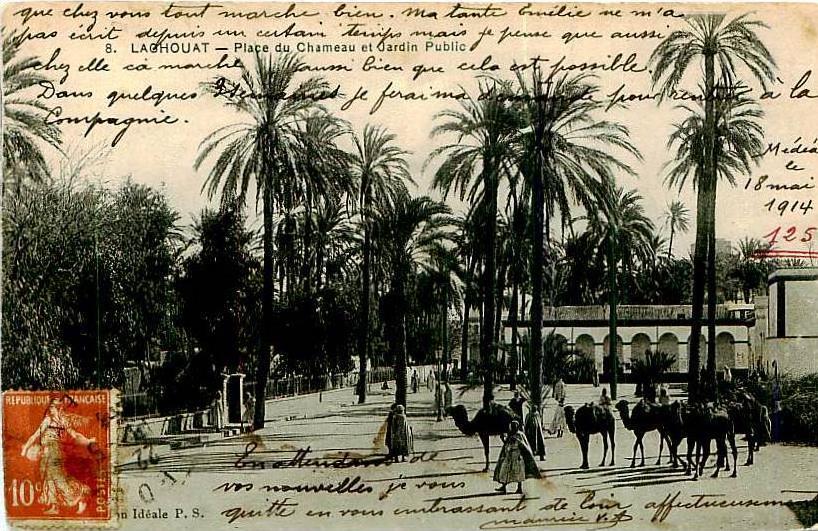 que chez vous tout marche bien. Ma tante Emélie ne m'a
pas écrit depuis un certain temps mais je pense que aussi
8. LAGHOUAT — Place du Chameau et Jardin Public
chez elle ca marche aussi bien que cela est possible.
Dans quelques je ferai ma demande pour à la
Compagnie.
Médéa
le
18 mai
1914
125
REPUBLIQUE FRANÇAISE
POSTES
10c
22
En attendant de
vos nouvelles je vous
quitte en vous embrassant affectueusement
Maurice
n Idéale P. S.